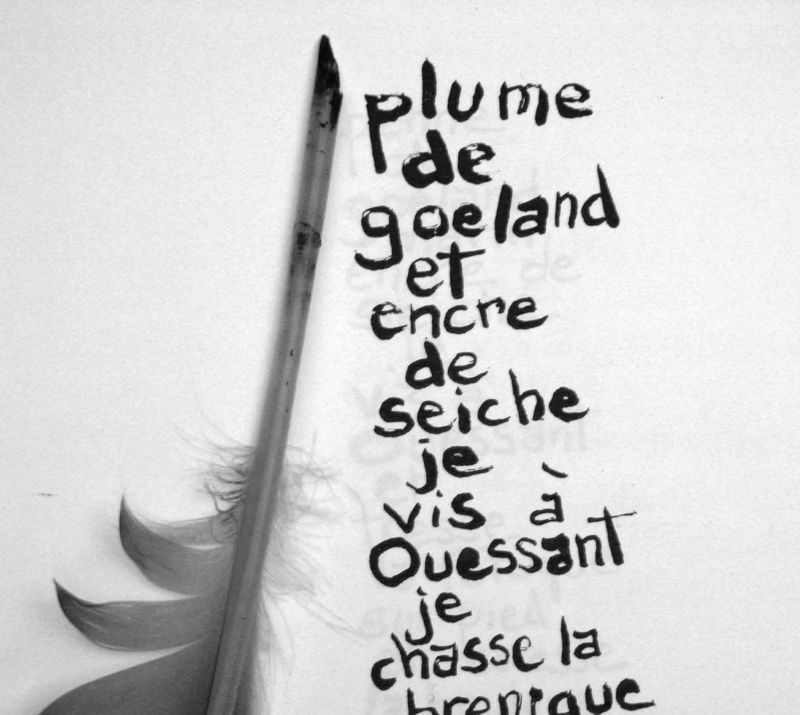 plume
de
goeland
et
encre
de
seiche
je
vis à
Ouessant
je
chasse la